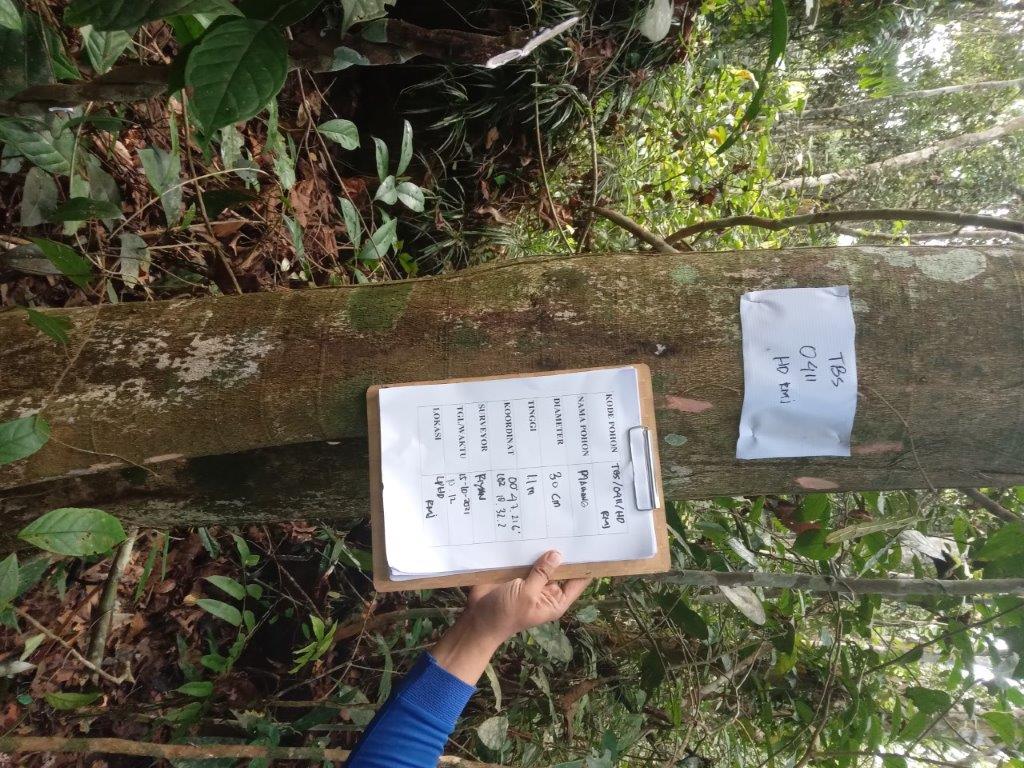 TBS
0411
HD RMJ
KODE POHON TBS/0411/HD
RMJ
NAMA POHON
DIAMETER 30 cm
TINGGI 11 m
KOORDINAT 00°47.216'
102 18.32.2
SURVEYOR Riyan
TGL/WAKTU 15-10-2021
10.12
LOKASI LPHD
RMJ